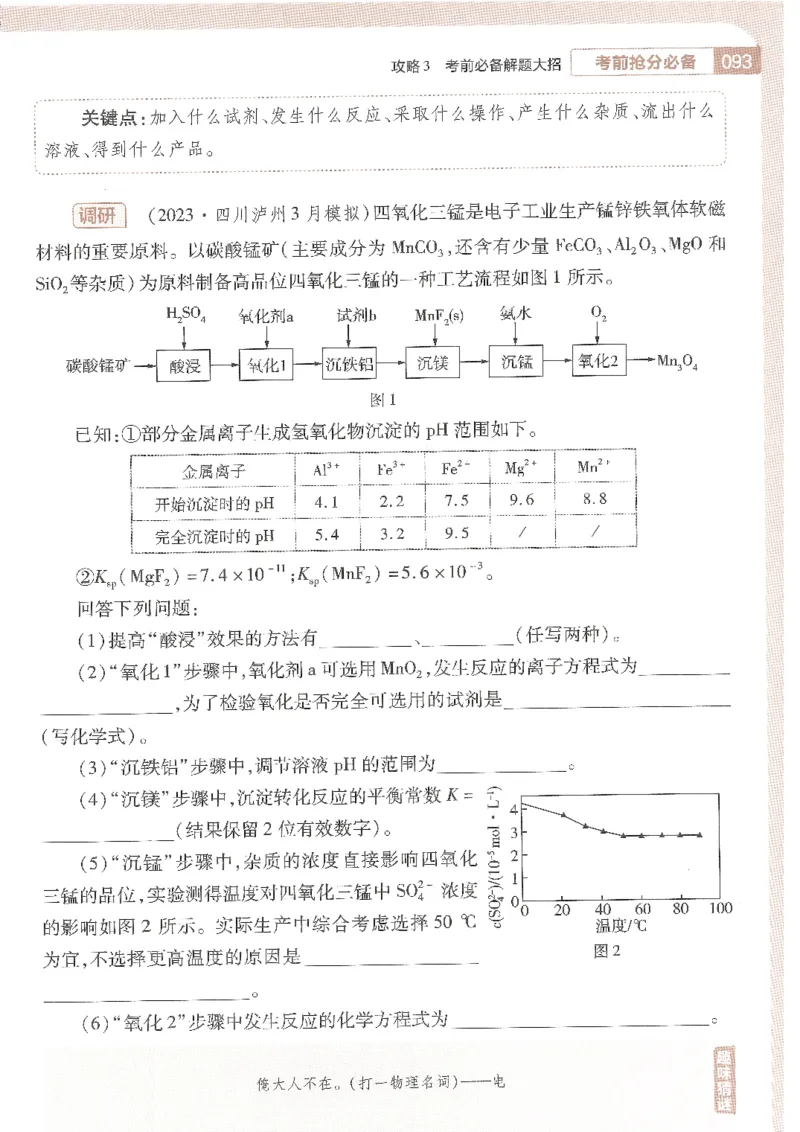 攻略3 考前必备解题大招 考前抢分必备 093
关键点:加入什么试剂、发生什么反应、采取什么操作、产生什么杂质、流出什么
溶液、得到什么产品。
调研 (2023·四川泸州3月模拟)四氧化三锰是电子工业生产锰锌铁氧体软磁
材料的重要原料。以碳酸锰矿(主要成分为 MnCO₃,还含有少量 FeCO₃、Al₂O₃、MgO 和
SiO₂等杂质)为原料制备高品位四氧化三锰的一种工艺流程如图1所示。
H₂SO₄ 氧化剂a 试剂b MnF₂(s) 氨水 O₂
碳酸锰矿 酸浸 氧化1 沉铁铝 沉镁 沉锰 氧化2 Mn₃O₄
图1
已知:①部分金属离子生成氢氧化物沉淀的 pH 范围如下。
金属离子 Al³⁺ Fe³⁺ Fe²⁺ Mg²⁺ Mn²⁺
开始沉淀时的 pH 4.1 2.2 7.5 9.6 8.8
完全沉淀时的 pH 5.4 3.2 9.5 / /
②Ksp(MgF₂)=7.4×10⁻¹¹;Ksp(MnF₂)=5.6×10⁻³。
回答下列问题:
(1)提高“酸浸”效果的方法有________、________(任写两种)。
(2)“氧化1”步骤中,氧化剂 a 可选用 MnO₂,发生反应的离子方程式为________
____________,为了检验氧化是否完全可选用的试剂是____________________
(写化学式)。
(3)“沉铁铝”步骤中,调节溶液 pH 的范围为____________。
(4)“沉镁”步骤中,沉淀转化反应的平衡常数 K=
____________(结果保留2位有效数字)。
(5)“沉锰”步骤中,杂质的浓度直接影响四氧化
三锰的品位,实验测得温度对四氧化三锰中 SO₄²⁻ 浓度
的影响如图2所示。实际生产中综合考虑选择 50 ℃
为宜,不选择更高温度的原因是________________
____________________。
c(SO₄²⁻)/(10⁻⁵ mol·L⁻¹)
4
3
2
1
0
0 20 40 60 80 100
温度/℃
图2
(6)“氧化2”步骤中发生反应的化学方程式为________________________。
俺大人不在。(打一物理名词)——电
趣味猜谜